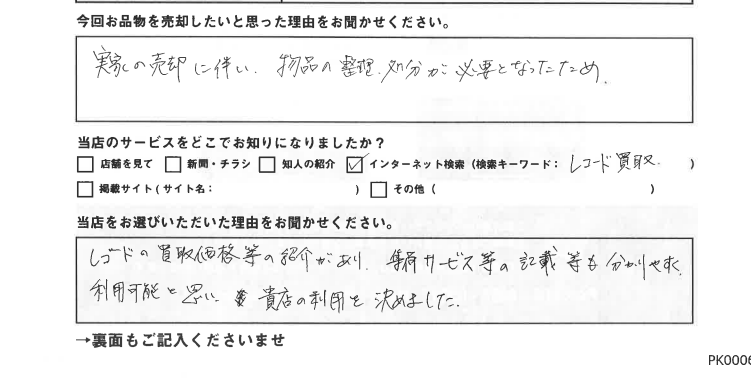 今回お品物を売却したいと思った理由をお聞かせください。
実家の売却に伴い、物品の整理、処分が必要となったため。
当店のサービスをどこでお知りになりましたか？
□ 店舗を見て □ 新聞・チラシ □ 知人の紹介 ☑ インターネット検索（検索キーワード： レコード買取. ）
□ 掲載サイト（サイト名： ） □ その他（ ）
当店をお選びいただいた理由をお聞かせください。
レコードの買取価格等の紹介があり、集荷サービス等の記載等も分かりやすく、
利用可能と思い、貴店の利用を決めました.
→裏面もご記入くださいませ
PK0006